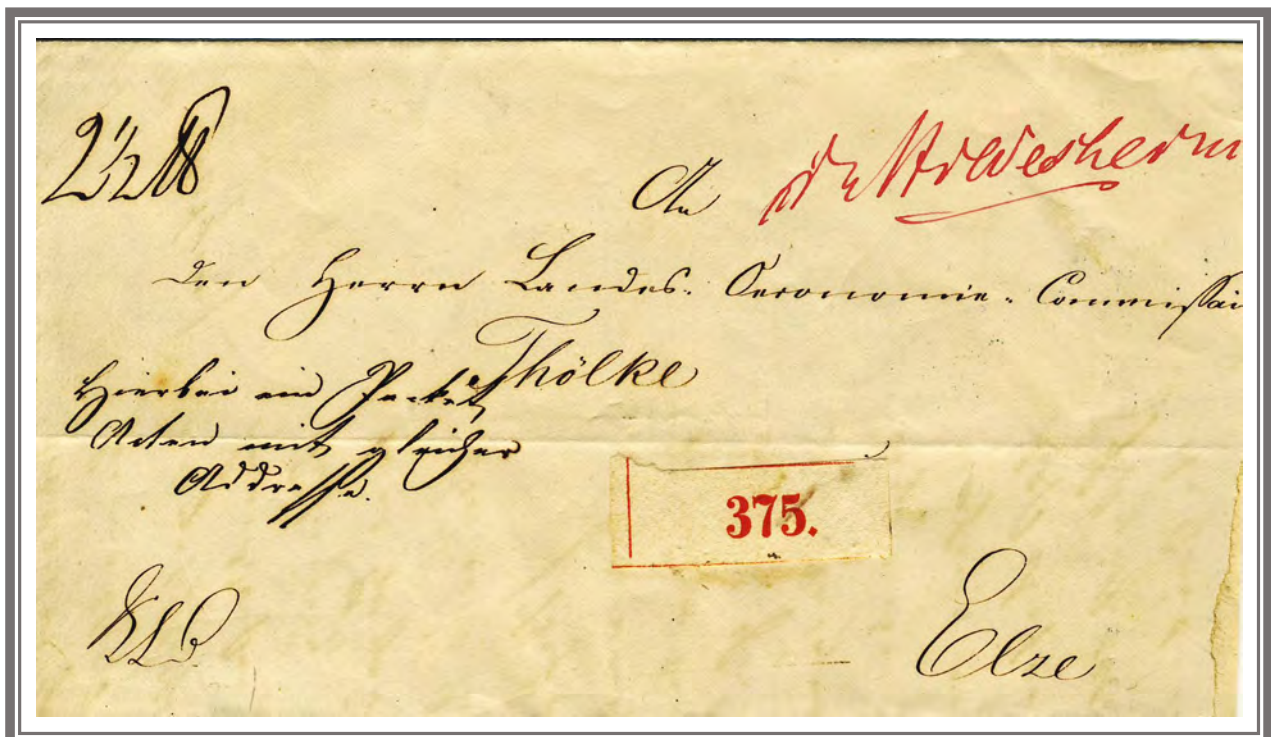 2 1/2 ℔
An
Hildesheim
den Herrn Landes-Oeconomie-Commissair
Thölke
Hierbei ein Packet
Acten mit gleicher
Addresse.
375.
Elze